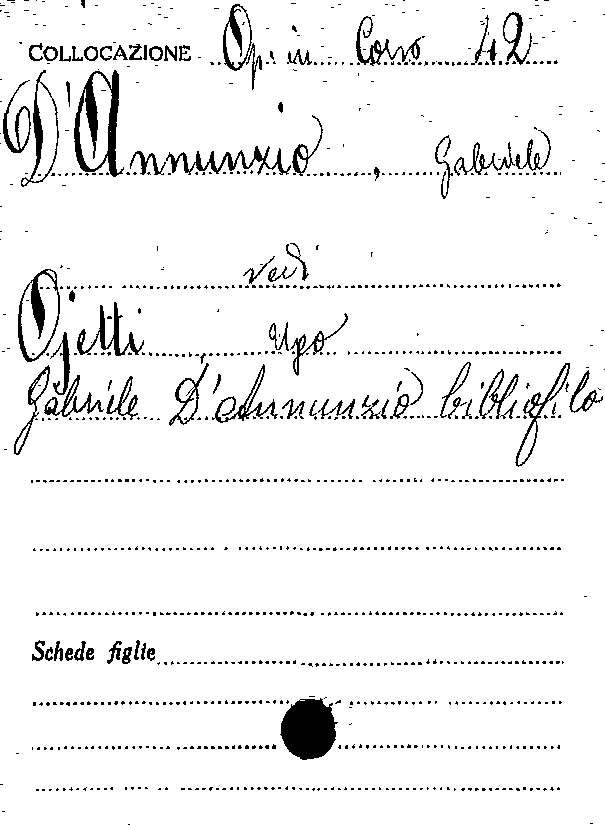 COLLOCAZIONE Op. in Corso 42
D'Annunzio, Gabriele
vedi
Ojetti, Ugo
Gabriele D'Annunzio bibliofilo
Schede figlie